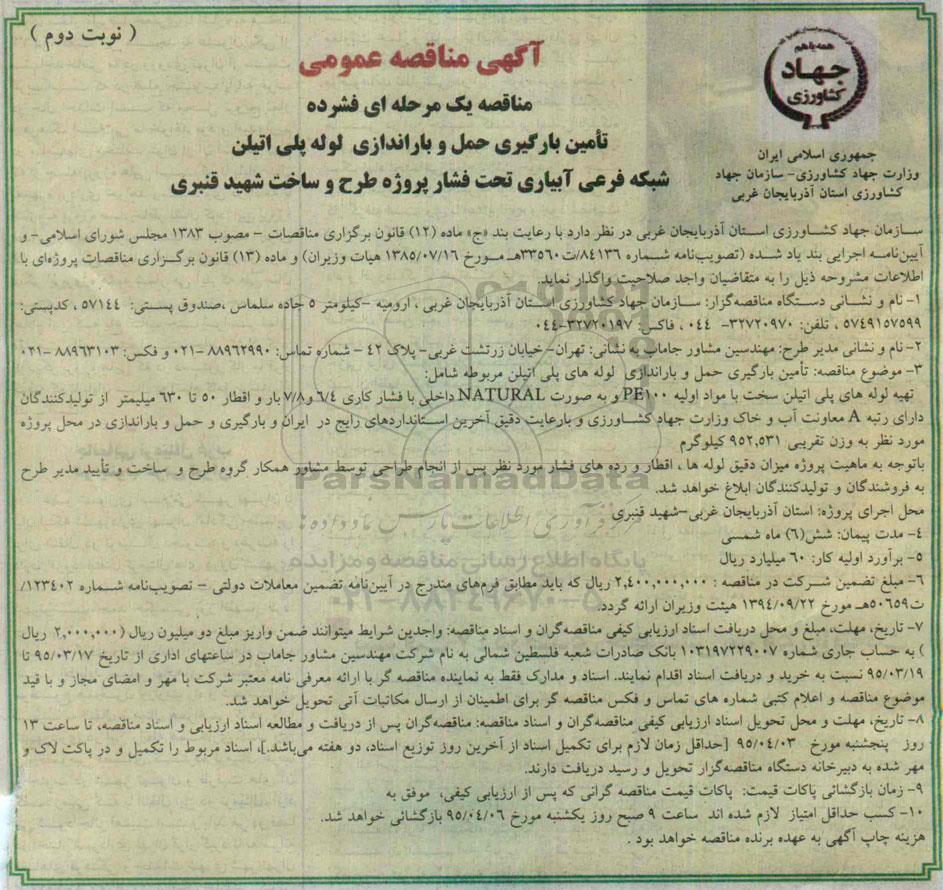 ( نوبت دوم )
آگهی مناقصه عمومی
مناقصه یک مرحله ای فشرده
تأمین بارگیری حمل و باراندازی لوله پلی اتیلن
شبکه فرعی آبیاری تحت فشار پروژه طرح و ساخت شهید قنبری
همه با هم
جهاد
کشاورزی
جمهوری اسلامی ایران
وزارت جهاد کشاورزی- سازمان جهاد
کشاورزی استان آذربایجان غربی
سازمان جهاد کشاورزی استان آذربایجان غربی در نظر دارد با رعایت بند «ج» ماده (۱۲) قانون برگزاری مناقصات - مصوب ۱۳۸۳ مجلس شورای اسلامی- و
آیین‌نامه اجرایی بند یاد شده (تصویب‌نامه شماره ۸۴۱۳۶/ت۳۳۵۶۰هـ مورخ ۱۳۸۵/۰۷/۱۶ هیات وزیران) و ماده (۱۳) قانون برگزاری مناقصات پروژه‌ای با
اطلاعات مشروحه ذیل را به متقاضیان واجد صلاحیت واگذار نماید.
۱- نام و نشانی دستگاه مناقصه‌گزار: سازمان جهاد کشاورزی استان آذربایجان غربی ، ارومیه -کیلومتر ۵ جاده سلماس ،صندوق پستی: ۵۷۱۴۴ ، کدپستی:
۵۷۴۹۱۵۷۵۹۹ ، تلفن: ۳۲۷۲۰۹۷۰- ۰۴۴ ، فاکس: ۳۲۷۲۰۱۹۷-۰۴۴
۲- نام و نشانی مدیر طرح: مهندسین مشاور جاماب به نشانی: تهران- خیابان زرتشت غربی- پلاک ۴۲ - شماره تماس: ۸۸۹۶۲۹۹۰ -۰۲۱ و فکس: ۸۸۹۶۳۱۰۳ -۰۲۱
۳- موضوع مناقصه: تأمین بارگیری حمل و باراندازی لوله های پلی اتیلن مربوطه شامل:
تهیه لوله های پلی اتیلن سخت با مواد اولیه PE۱۰۰ و به صورت NATURAL داخلی با فشار کاری ۶/۴ و ۷/۸ بار و اقطار ۵۰ تا ۶۳۰ میلیمتر از تولیدکنندگان
دارای رتبه A معاونت آب و خاک وزارت جهاد کشاورزی و بارعایت دقیق آخرین استانداردهای رایج در ایران و بارگیری و حمل و باراندازی در محل پروژه
مورد نظر به وزن تقریبی ۹۵۲,۵۳۱ کیلوگرم
باتوجه به ماهیت پروژه میزان دقیق لوله ها ، اقطار و رده های فشار مورد نظر پس از انجام طراحی توسط مشاور همکار گروه طرح و ساخت و تأیید مدیر طرح
به فروشندگان و تولیدکنندگان ابلاغ خواهد شد.
محل اجرای پروژه: استان آذربایجان غربی-شهید قنبری
۴- مدت پیمان: شش(۶) ماه شمسی
۵- برآورد اولیه کار: ۶۰ میلیارد ریال
۶- مبلغ تضمین شرکت در مناقصه : ۲,۴۰۰,۰۰۰,۰۰۰ ریال که باید مطابق فرم‌های مندرج در آیین‌نامه تضمین معاملات دولتی - تصویب‌نامه شماره ۱۲۳۴۰۲/
ت۵۰۶۵۹هـ مورخ ۱۳۹۴/۰۹/۲۲ هیئت وزیران ارائه گردد.
۷- تاریخ، مهلت، مبلغ و محل دریافت اسناد ارزیابی کیفی مناقصه‌گران و اسناد مناقصه: واجدین شرایط میتوانند ضمن واریز مبلغ دو میلیون ریال (۲,۰۰۰,۰۰۰ ریال
) به حساب جاری شماره ۱۰۳۱۹۷۲۲۹۰۰۷ بانک صادرات شعبه فلسطین شمالی به نام شرکت مهندسین مشاور جاماب در ساعتهای اداری از تاریخ ۹۵/۰۳/۱۷ تا
۹۵/۰۳/۱۹ نسبت به خرید و دریافت اسناد اقدام نمایند. اسناد و مدارک فقط به نماینده مناقصه گر با ارائه معرفی نامه معتبر شرکت با مهر و امضای مجاز و با قید
موضوع مناقصه و اعلام کتبی شماره های تماس و فکس مناقصه گر برای اطمینان از ارسال مکاتبات آتی تحویل خواهد شد.
۸- تاریخ، مهلت و محل تحویل اسناد ارزیابی کیفی مناقصه‌گران و اسناد مناقصه: مناقصه‌گران پس از دریافت و مطالعه اسناد ارزیابی و اسناد مناقصه، تا ساعت ۱۳
روز پنجشنبه مورخ ۹۵/۰۴/۰۳ [حداقل زمان لازم برای تکمیل اسناد از آخرین روز توزیع اسناد، دو هفته می‌باشد.]، اسناد مربوط را تکمیل و در پاکت لاک و
مهر شده به دبیرخانه دستگاه مناقصه‌گزار تحویل و رسید دریافت دارند.
۹- زمان بازگشائی پاکات قیمت: پاکات قیمت مناقصه گرانی که پس از ارزیابی کیفی، موفق به
۱۰- کسب حداقل امتیاز لازم شده اند ساعت ۹ صبح روز یکشنبه مورخ ۹۵/۰۴/۰۶ بازگشائی خواهد شد.
هزینه چاپ آگهی به عهده برنده مناقصه خواهد بود .
ParsNamadData
پایگاه اطلاع رسانی مناقصه و مزایده
۰۲۱-۸۸۳۴۹۶۷۰-۵